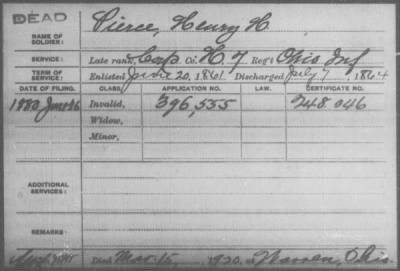 DEAD
Pierce, Henry H
NAME OF SOLDIER:
SERVICE: Late rank, Cap Co. H, 7 Reg't Ohio Inf
TERM OF SERVICE: Enlisted June 20, 1861. Discharged July 7, 1864
DATE OF FILING. CLASS. APPLICATION NO. LAW. CERTIFICATE NO.
1880 Invalid, 396,555 248,046
Widow,
Minor,
ADDITIONAL SERVICES:
REMARKS:
Died Mar. 15, 1920, Warren, Ohio